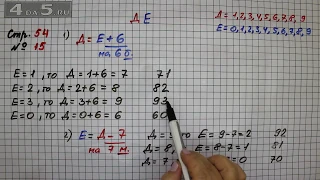 4da5.ru
Д Е
Д = 1,2,3,4,5,6,7,8,9
Е = 0,1,2,3,4,5,6,7,8,9
Стр. 54
№ 15
1) Д = Е + 6
на 6 б.
Е = 1, то Д = 1+6 = 7 71
Е = 2, то Д = 2+6 = 8 82
Е = 3, то Д = 3+6 = 9 93
Е = 0, то Д = 0+6 = 6 60
2) Е = Д - 7
на 7 м.
Е = 9-7 = 2 92
Д = 8, Е = 1
Д = 7, 70